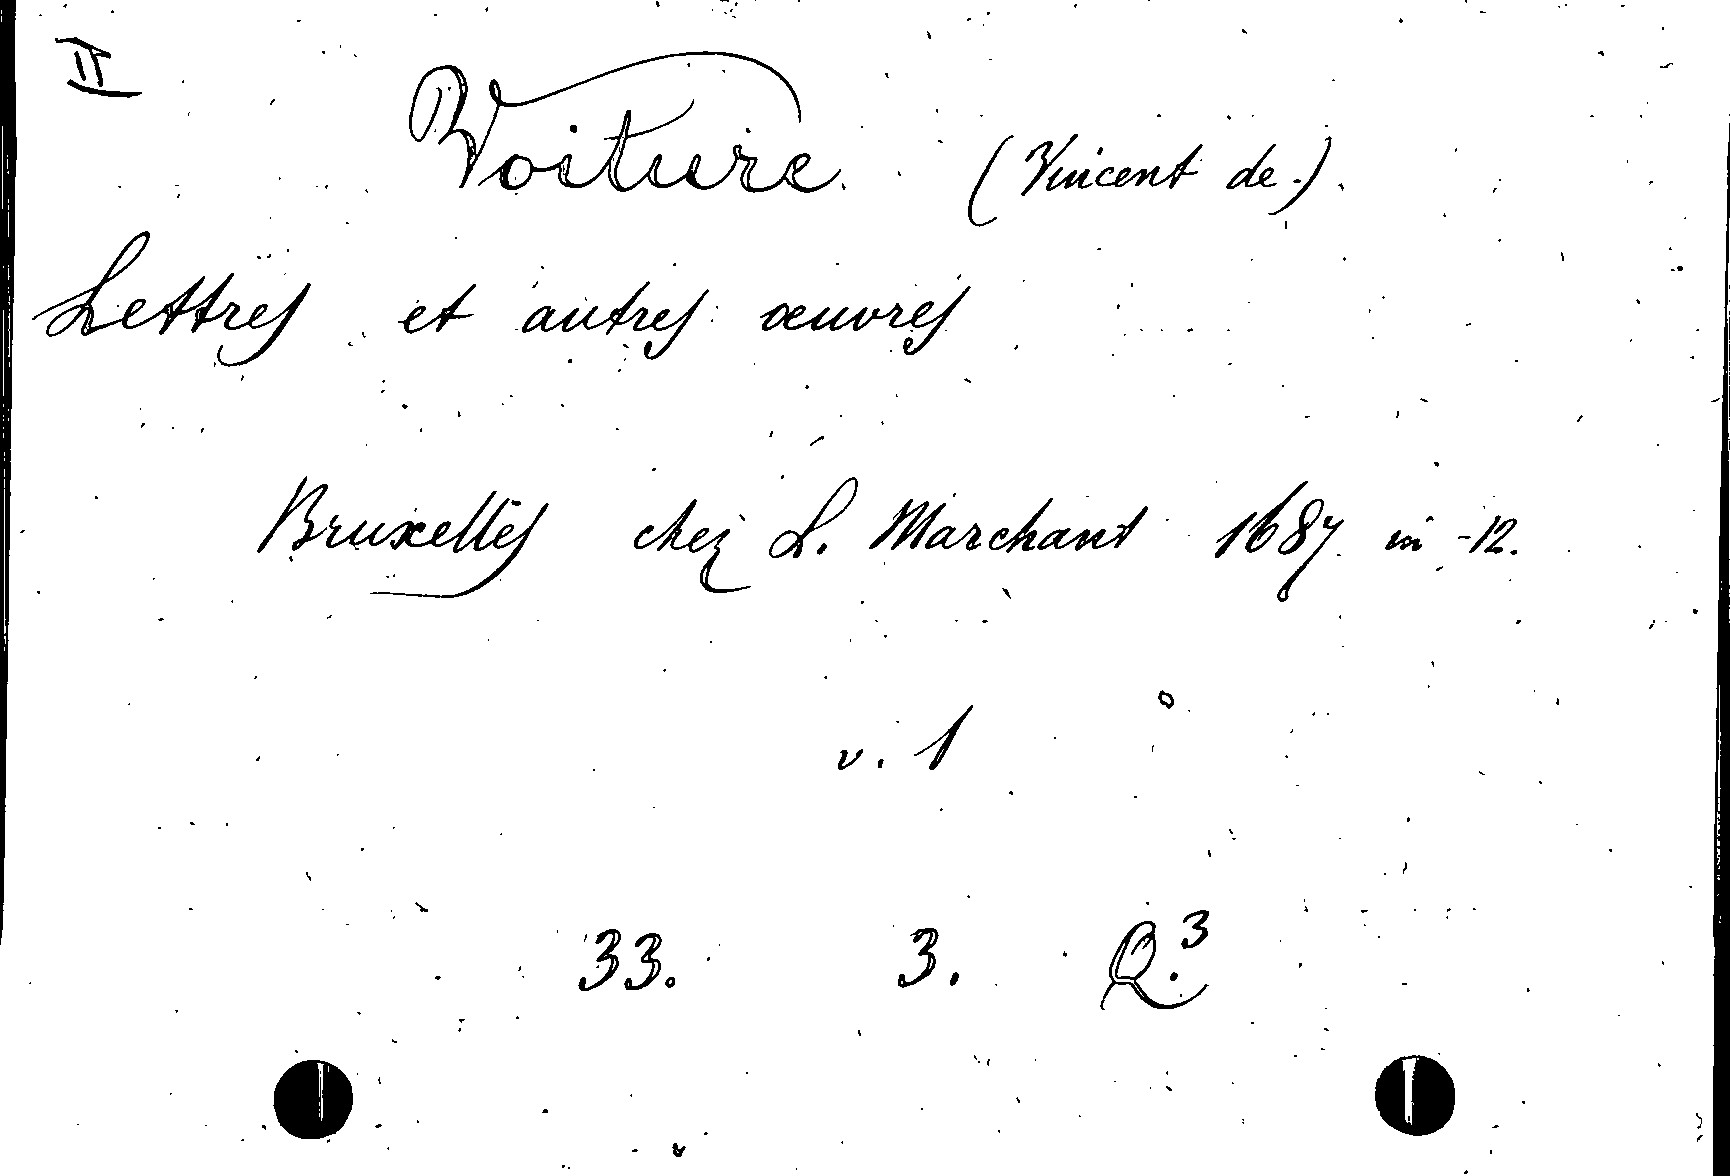 II
Voiture (Vincent de.)
Lettres et autres œuvres
Bruxelles chez L. Marchant 1687 in-12.
v. 1
33. 3. Q.3